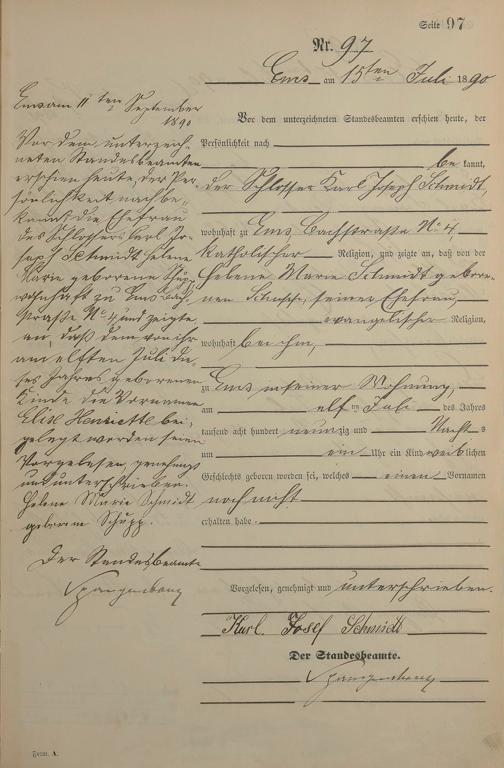 Seite 97
Nr. 97
Ems am 15ten Juli 1890
Vor dem unterzeichneten Standesbeamten erschien heute, der
Persönlichkeit nach
be kannt,
der Schlosser Karl Joseph Schmidt,
wohnhaft zu Ems Bachstrasse No 4
katholischer Religion, und zeigte an, daß von der
Helene Marie Schmidt gebore-
nen Schupp, seiner Ehefrau,
evangelischer Religion,
wohnhaft bei ihm,
zu Ems in seiner Wohnung,
am elf ten Juli des Jahres
tausend acht hundert neunzig und Nachts
um ein Uhr ein Kind weiblichen
Geschlechts geboren worden sei, welches einen Vornamen
noch nicht
erhalten habe.
Vorgelesen, genehmigt und unterschrieben.
Karl Josef Schmidt
Der Standesbeamte.
Spangenberg
Ems am 11ten September
1890
Vor dem unterzeich-
neten Standesbeamten
erschien heute, der Per-
sönlichkeit nach be-
kannt, die Ehefrau
des Schlossers Karl Jo-
seph Schmidt Helene
Marie geborene Schupp
wohnhaft zu Ems Bach-
straße No 4 und zeigte
an, daß dem von ihr
am elften Juli die-
ses Jahres geborenen
Kinde die Vornamen
Elise Henriette bei-
gelegt worden seien
Vorgelesen, genehmigt
und unterschrieben.
Helene Marie Schmidt
geborene Schupp.
Der Standesbeamte
Spangenberg
Form. A.